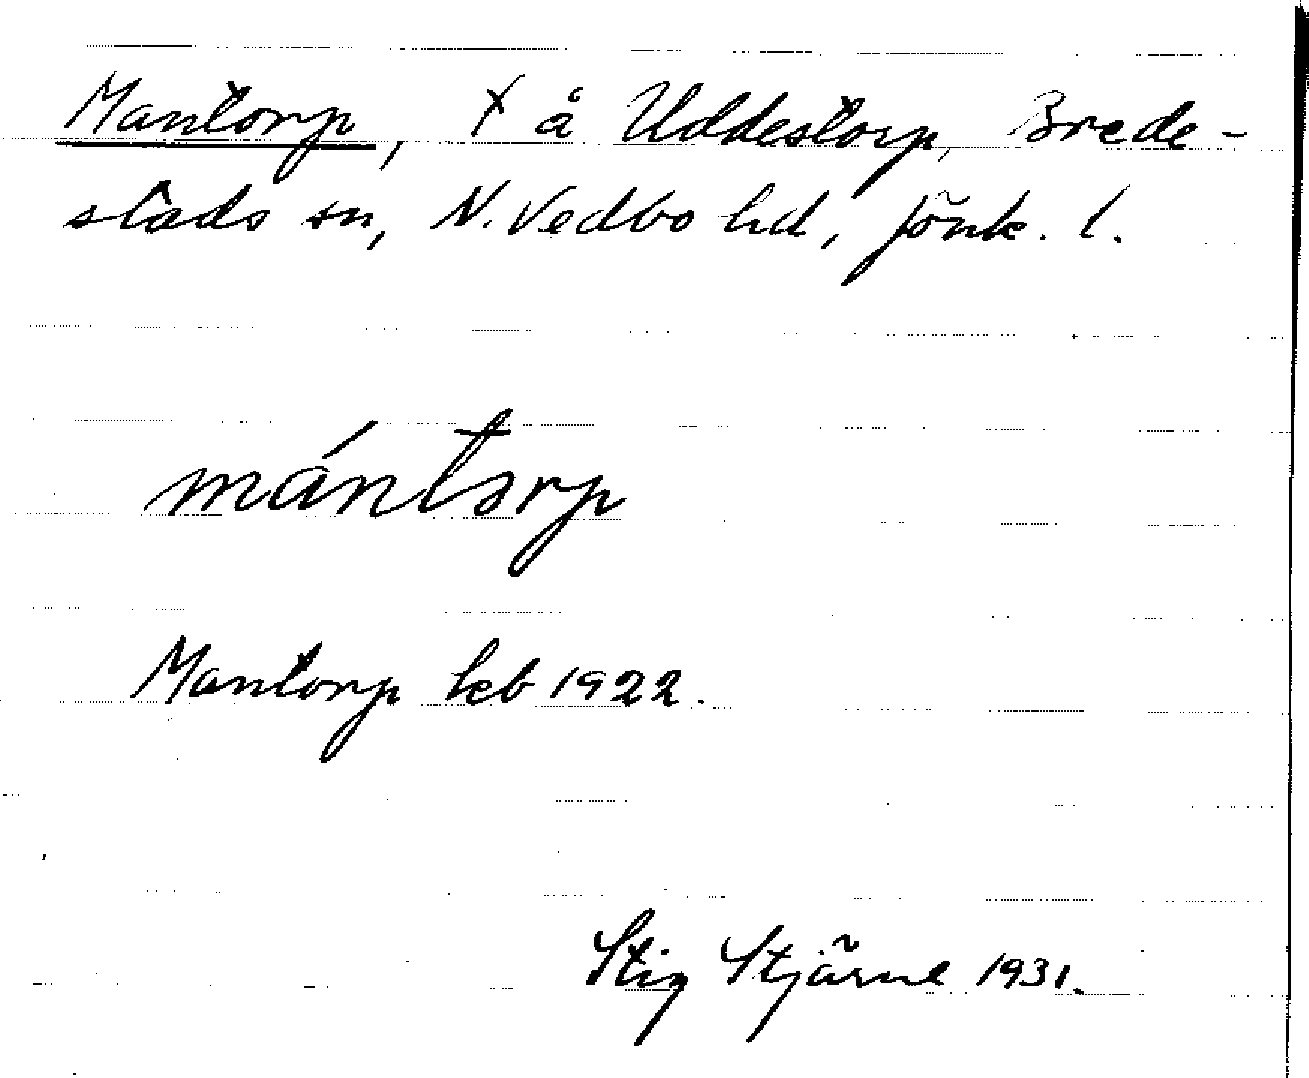 Mantorp, x å Uddestorp, Brede-
stads sn, N. Vedbo hd, Jönk. l.
mántorp
Mantorp keb 1922.
Stig Stjärne 1931.